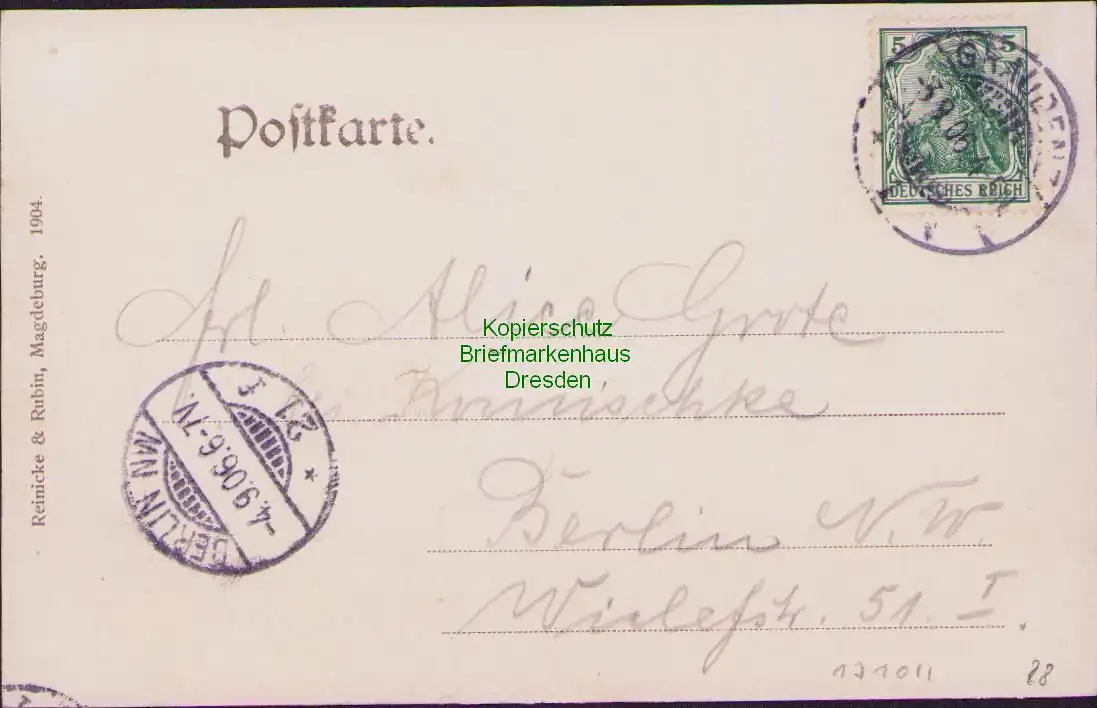 Postkarte.
5 5
DEUTSCHES REICH
GRAUDENZ
Frl. Alice Grote
bei Komischke
Berlin N.W.
Wiclefstr. 51. I.
Kopierschutz
Briefmarkenhaus
Dresden
BERLIN NW
-4.9.06.6-7N.
21
*
Reinicke & Rubin, Magdeburg. 1904.
171011
88